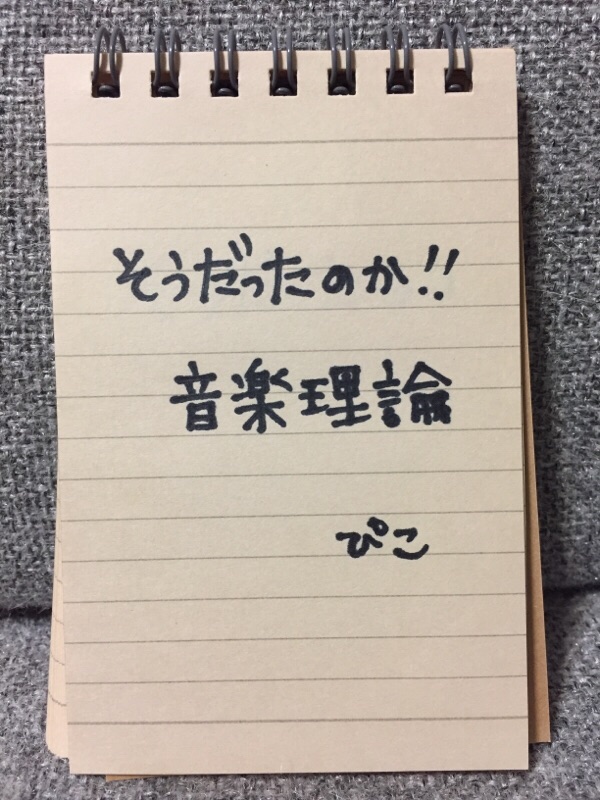 そうだったのか!!
音楽理論
ぴこ